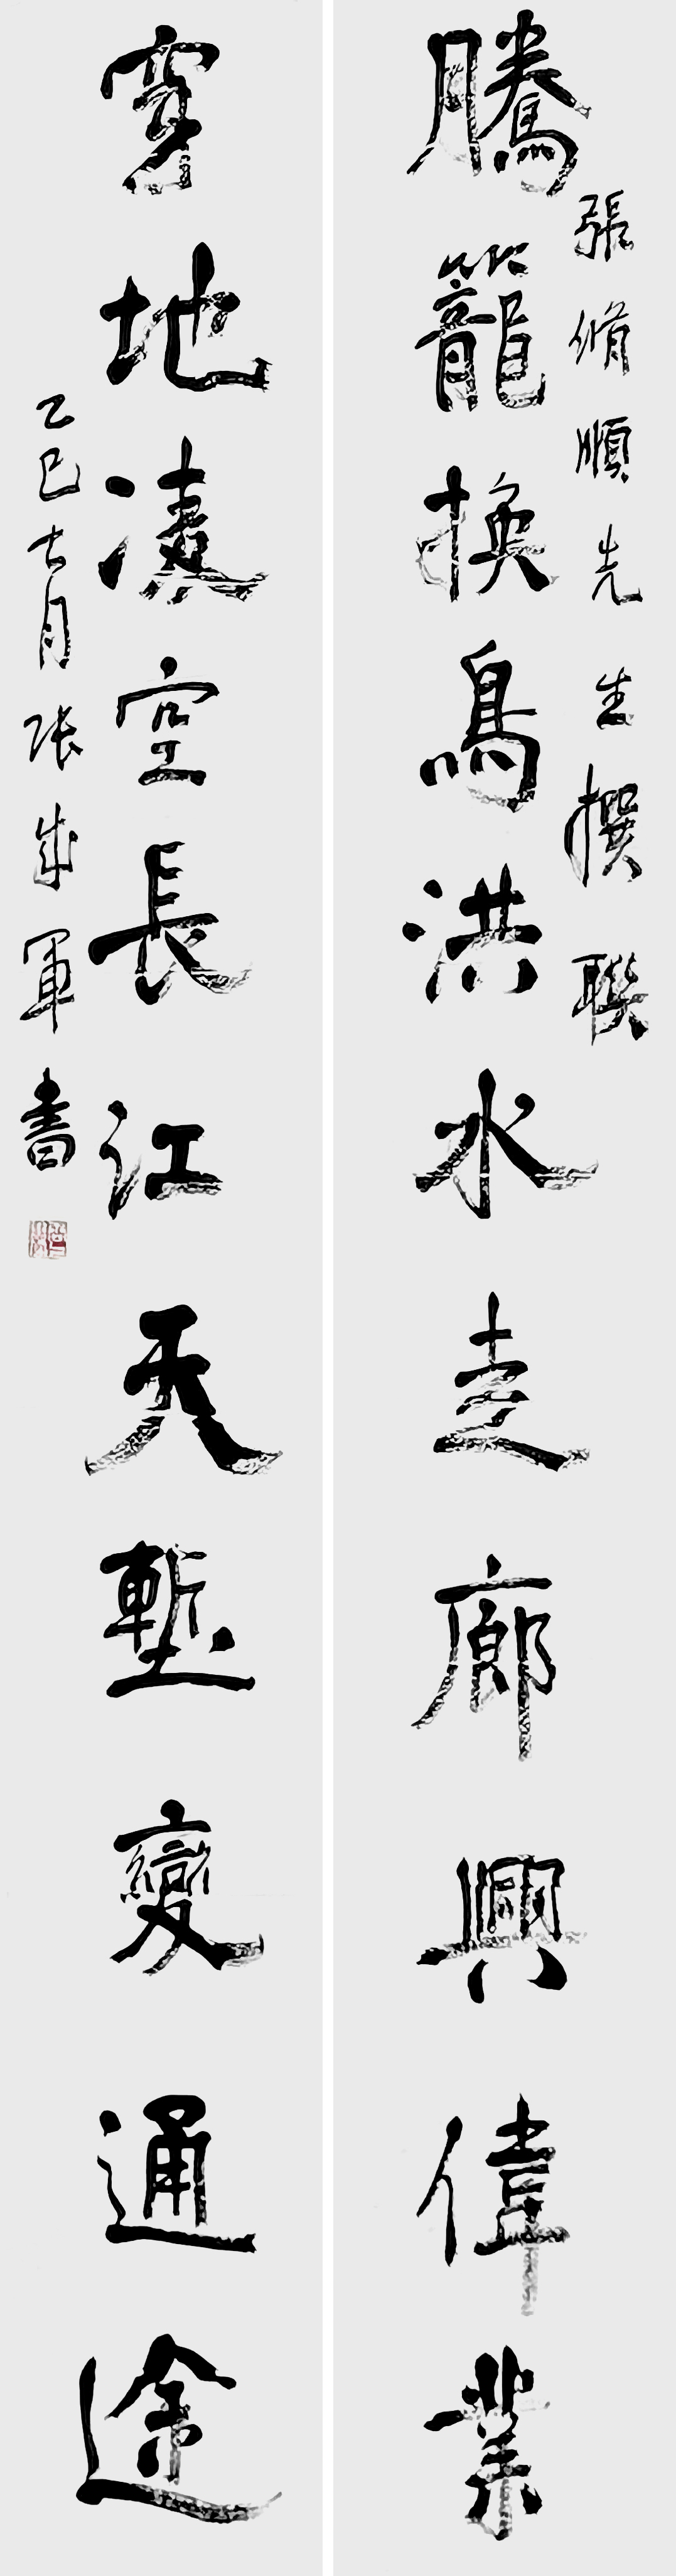 張脩順先生撰聯
騰籠換鳥洪水走廊興偉業
穿地凌空長江天塹變通途
乙巳七月張成軍書